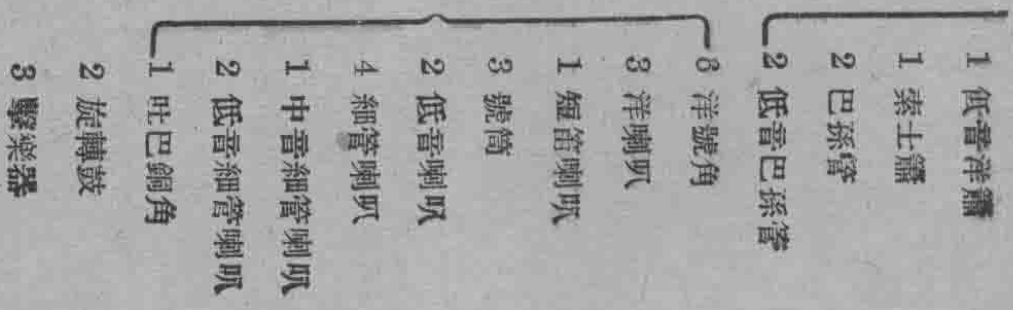 1 低音洋簫
1 索士簫
2 巴孫管
2 低音巴孫管
8 洋號角
3 洋喇叭
1 短笛喇叭
3 號筒
2 低音喇叭
4 細管喇叭
1 中音細管喇叭
2 低音細管喇叭
1 吐巴銅角
2 旋轉鼓
3 擊樂器